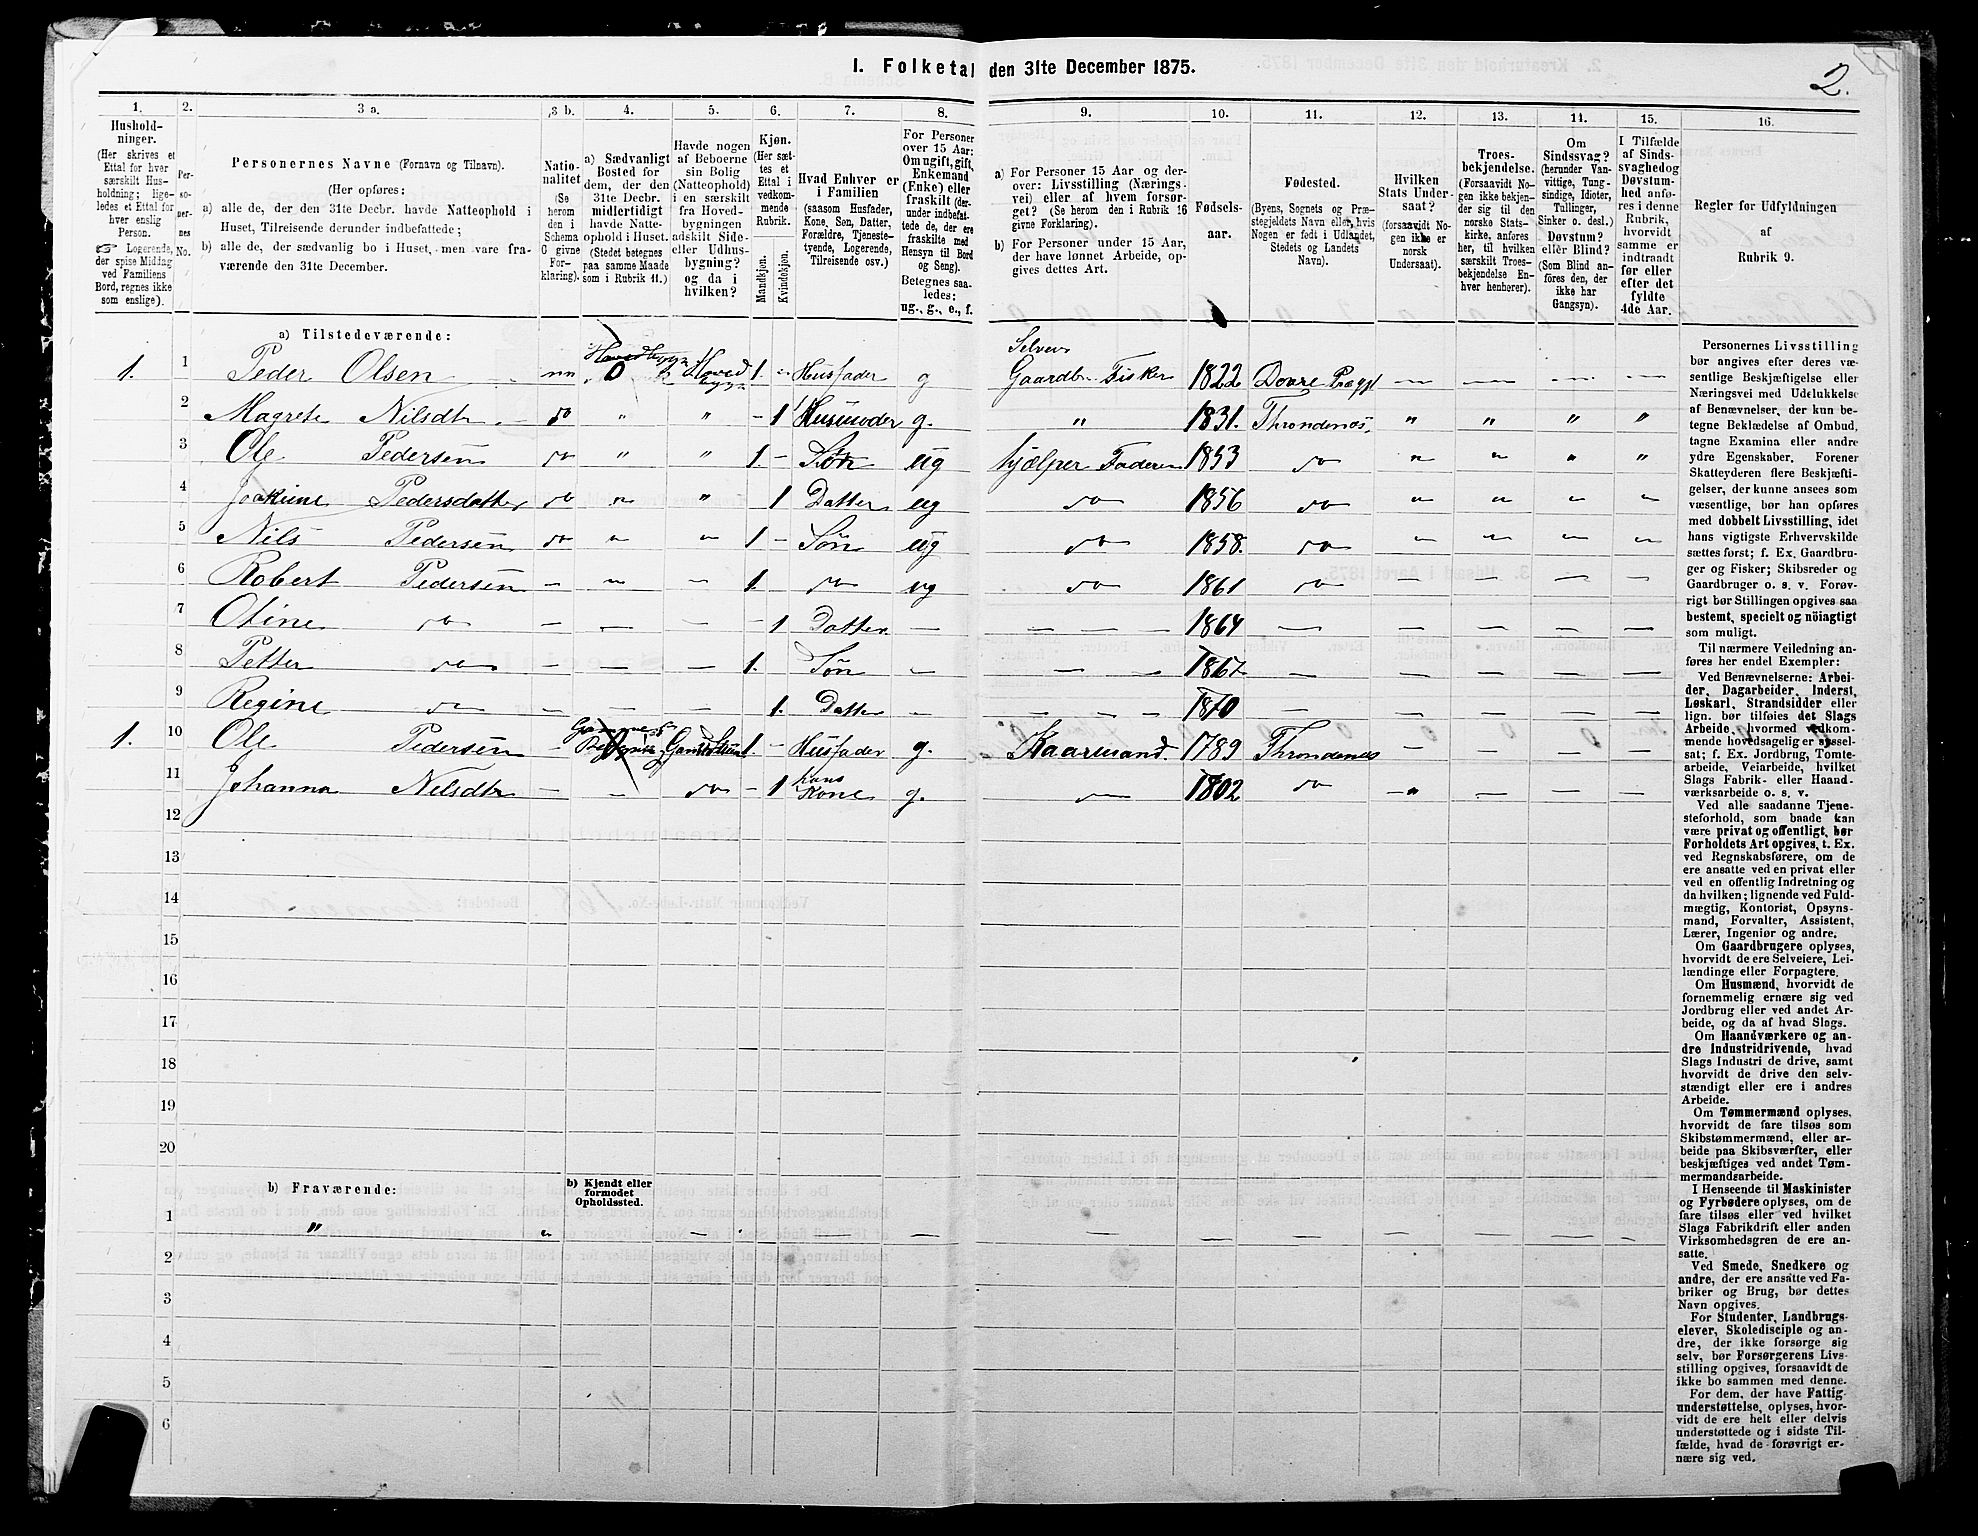 I. Folketal den 31te December 1875.
2.
1.
2.
3 a.
3 b.
4.
5.
6.
7.
8.
9.
10.
11.
12.
13.
14.
15.
16.
Hushold-
ninger.
(Her skrives et
Ettal for hver
særskilt Hus-
holdning; lige-
ledes et Ettal for
hver enslig
Person.
☞ Logerende,
der spise Middag
ved Familiens
Bord, regnes ikke
som enslige).
Per-
so-
ner-
nes
No.
Personernes Navne (Fornavn og Tilnavn).
(Her opføres:
a) alle de, der den 31te Decbr. havde Natteophold i
Huset, Tilreisende derunder indbefattede;
b) alle de, der sædvanlig bo i Huset, men vare fra-
værende den 31te December.
Natio-
nalitet
(Se
herom
den i
Schema
C givne
For-
klaring).
a) Sædvanligt
Bosted for
dem, der den
31te Decbr.
midlertidigt
havde Natte-
ophold i Huset.
(Stedet betegnes
paa samme Maade
som i Rubrik 11.)
Havde nogen
af Beboerne
sin Bolig
(Natteophold)
i en særskilt
fra Hoved-
bygningen
adskilt Side-
eller Udhus-
bygning?
og da i
hvilken?
Kjøn.
(Her sæt-
tes et
Ettal i
vedkom-
mende
Rubrik.
Mandkjøn.
Kvindekjøn.
Hvad Enhver er
i Familien
(saasom Husfader,
Kone, Søn, Datter,
Forældre, Tjeneste-
tyende, Logerende,
Tilreisende osv.)
For Personer
over 15 Aar:
Om ugift, gift,
Enkemand
(Enke) eller
fraskilt (der-
under indbefat-
tede de, der ere
fraskilte med
Hensyn til Bord
og Seng).
Betegnes saa-
ledes:
ug., g., e., f.
a) For Personer 15 Aar og der-
over: Livsstilling (Nærings-
vei) eller af hvem forsør-
get? (Se herom den i Rubrik 16
givne Forklaring).
b) For Personer under 15 Aar,
der have lønnet Arbeide, op-
gives dettes Art.
Fødsels-
aar.
Fødested.
(Byens, Sognets og Præ-
stegjeldets Navn eller, hvis
Nogen er født i Udlandet,
Stedets og Landets
Navn).
Hvilken
Stats Under-
saat?
(forsaavidt No-
gen ikke er
norsk
Undersaat).
Troes-
bekjendelse.
(Forsaavidt No-
gen ikke bekjen-
der sig til den
norske Stats-
kirke, anføres
her, til hvilken
særskilt Troes-
bekjendelse En-
hver henhører).
Om
Sindssvag?
(herunder Van-
vittige, Tung-
sindige, Idioter,
Tullinger,
Sinker o. desl.)
Døvstum?
eller Blind?
(Som Blind an-
føres den, der
ikke har
Gangsyn).
I Tilfælde
af Sinds-
svaghed og
Døvstum-
hed anfø-
res i denne
Rubrik,
hvorvidt
samme er
indtraadt
før eller
efter det
fyldte
4de Aar.
Regler for Udfyldningen
af
Rubrik 9.
a) Tilstedeværende:
1. 1 Peder Olsen nn Hovedbygn 1. – Husfader g Selveier Gaardbr. Fisker 1822 Dovre Prægjl
2 Magrete Nilsdtr. do " " – 1 Husmoder g. " 1831. Throndenæs. " " " "
3 Ole Pedersen do " " 1. – Søn ug hjælper Faderen 1853 do " " " "
4 Joakime Pedersdatter do " " 1 Datter ug do 1856 do " " " "
5 Nils Pedersen do " " 1 – Søn ug do 1858. do " – – –
6 Robert Pedersen – – – 1. do ug do 1861 do – – – –
7 Oline do – – – – 1 Datter – – 1864 – – – – –
8 Petter do – – – 1. Søn – – 1867 – – – – –
9 Regine do – – – 1. Datter – – 1870 – – – – –
1. 10 Ole Pedersen – 1 – Husfader g. Kaarmand. 1789 Throndenæs – – – –
11 Johanna Nilsdtr – – do – 1 hans Kone g. do 1802 do – – – –
12
13
14
15
16
17
18
19
20
b) Fraværende:
b) Kjendt eller
formodet
Opholdssted.
1 " " – – – – – – – – – –
2
3
4
5
6
Personernes Livsstilling
bør angives efter deres væ-
sentlige Beskjæftigelse eller
Næringsvei med Udelukkelse
af Benævnelser, der kun be-
tegne Beklædelse af Ombud,
tagne Examina eller andre
ydre Egenskaber. Forener
Skatteyderen flere Beskjæfti-
gelser, der kunne ansees som
væsentlige, bør han opføres
med dobbelt Livsstilling, idet
hans vigtigste Erhvervskilde
sættes først; f. Ex. Gaardbru-
ger og Fisker; Skibsreder og
Gaardbruger o. s. v. Forøv-
rigt bør Stillingen opgives saa
bestemt, specielt og nöiagtigt
som muligt.
Til nærmere Veiledning an-
føres her endel Exempler:
Ved Benævnelserne: Arbei-
der, Dagarbeider, Inderst,
Løskarl, Strandsidder eller
lign. bør tilføies det Slags
Arbeide, hvormed vedkom-
mende hovedsagelig er syssel-
sat; f. Ex. Jordbrug, Tomte-
arbeide, Veiarbeide, hvilket
Slags Fabrik- eller Haand-
værksarbeide o. s. v.
Ved alle saadanne Tjene-
steforhold, som baade kan
være privat og offentligt, bør
Forholdets Art opgives, t. Ex.
ved Regnskabsførere, om de
ere ansatte ved en privat eller
ved en offentlig Indretning og
da hvilken; lignende ved Fuld-
mægtig, Kontorist, Opsyns-
mand, Forvalter, Assistent,
Lærer, Ingeniør og andre.
Om Gaardbrugere oplyses,
hvorvidt de ere Selveiere, Lei-
lændinge eller Forpagtere.
Om Husmænd, hvorvidt de
fornemmelig ernære sig ved
Jordbrug eller ved andet Ar-
beide, og da af hvad Slags.
Om Haandværkere og an-
dre Industridrivende, hvad
Slags Industri de drive, samt
hvorvidt de drive den selv-
stændigt eller ere i andres
Arbeide.
Om Tømmermænd oplyses,
hvorvidt de fare tilsøs som
Skibstømmermænd, eller ar-
beide paa Skibsværfter, eller
beskjæftiges ved andet Tøm-
mermandsarbeide.
I Henseende til Maskinister
og Fyrbødere oplyses, om de
fare tilsøs eller ved hvilket
Slags Fabrikdrift eller anden
Virksomhedsgren de ere an-
satte.
Ved Smede, Snedkere og
andre, der ere ansatte ved Fa-
briker og Brug, bør dettes
Navn opgives.
For Studenter, Landbrugs-
elever, Skoledisciple og an-
dre, der ikke forsørge sig
selv, bør Forsørgerens Livs-
stilling opgives, forsaavidt de
ikke bo sammen med denne.
For dem, der have Fattig-
understøttelse, oplyses, hvor-
vidt de ere helt eller delvis
understøttede og i sidste Til-
fælde, hvad de forøvrigt er-
nære sig ved.